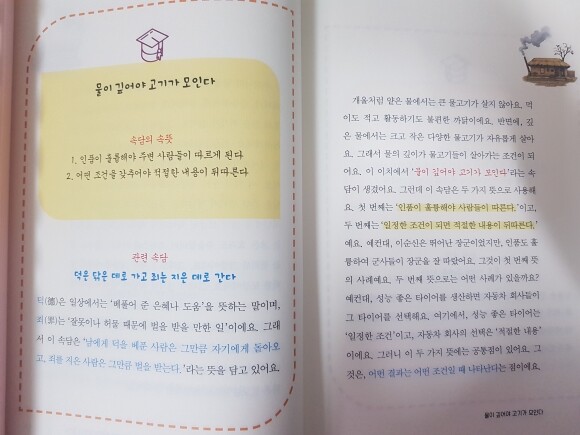 물이 깊어야 고기가 모인다
속담의 속뜻
1. 인품이 훌륭해야 주변 사람들이 따르게 된다.
2. 어떤 조건을 갖추어야 적절한 내용이 뒤따른다.
관련 속담
덕은 닦은 데로 가고 죄는 지은 데로 간다
덕(德)은 일상에서는 ‘베풀어 준 은혜나 도움’을 뜻하는 말이며,
죄(罪)는 ‘잘못이나 허물 때문에 벌을 받을 만한 일’이에요. 그래
서 이 속담은 ‘남에게 덕을 베푼 사람은 그만큼 자기에게 돌아오
고, 죄를 지은 사람은 그만큼 벌을 받는다.’라는 뜻을 담고 있어요.
개울처럼 얕은 물에서는 큰 물고기가 살지 않아요. 먹
이도 적고 활동하기도 불편한 까닭이에요. 반면에, 깊
은 물에서는 크고 작은 다양한 물고기가 자유롭게 살아
요. 그래서 물의 깊이가 물고기들이 살아가는 조건이 되
어요. 이 이치에서 ‘물이 깊어야 고기가 모인다’라는 속
담이 생겼어요. 그런데 이 속담은 두 가지 뜻으로 사용해
요. 첫 번째는 ‘인품이 훌륭해야 사람들이 따른다.’이고,
두 번째는 ‘일정한 조건이 되면 적절한 내용이 뒤따른다.’
예요. 예컨대, 이순신은 뛰어난 장군이었지만, 인품도 훌
륭하여 군사들이 장군을 잘 따랐어요. 그것이 첫 번째 뜻
의 사례예요. 두 번째 뜻으로는 어떤 사례가 있을까요?
예컨대, 성능 좋은 타이어를 생산하면 자동차 회사들이
그 타이어를 선택해요. 여기에서, 성능 좋은 타이어는
‘일정한 조건’이고, 자동차 회사의 선택은 ‘적절한 내용’
이에요. 그러니 이 두 가지 뜻에는 공통점이 있어요. 그
것은, 어떤 결과는 어떤 조건일 때 나타난다는 점이에요.
물이 깊어야 고기가 모인다